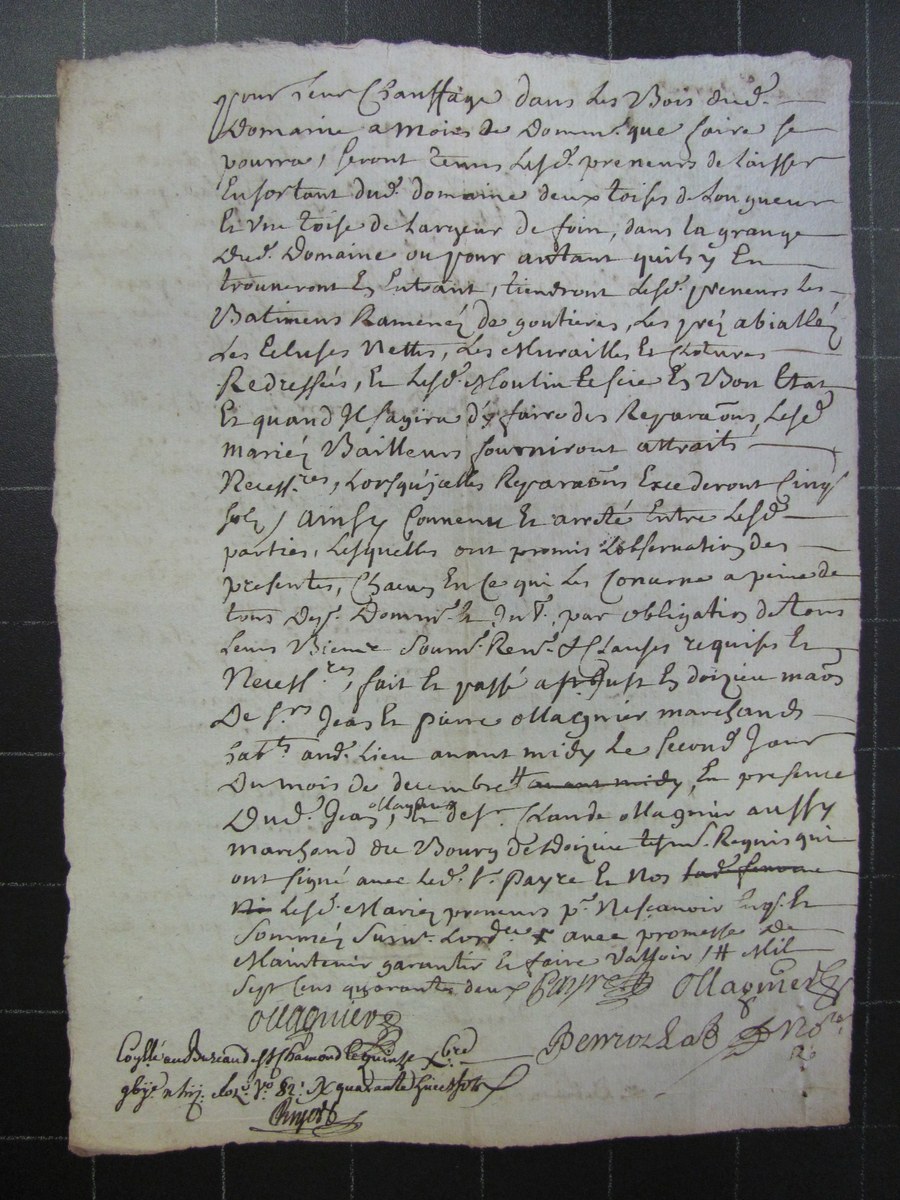 pour leur Chauffage dans Les Bois dud.
Domaine a moins de Domm. que faire se
pourra, seront tenus Lesd. preneurs de Laisser
En sortant dud. domaine deux toises de Longueur
Et une toise de Largeur de foin, dans la grange
Dud. Domaine ou pour autant quils y En
trouveront En Entrant, tiendront Lesd. preneurs Les
Batimens Ramenéz de goutieres, Les prez abialléz
Les Ecluses Nettes, Les Murailles Et Clotures
Redressées, Et Lesd. Moulin Et scie En Bon Etat
Et quand Il sagira d'y faire des Reparaons, Lesd
mariéz Bailleurs fourniront attraits
Necess.res, Lorsqu'jcelles Reparaons Excederont Cinq
sols, Ainsy Convenu Et arrété Entre Lesd
parties, Lesquelles ont promis L'observation des
presentes, Chacun En Ce qui Les Concerne a peine de
tous Dep. Domm. Et Int., par obligation de tous
Leurs Biens Soum. Ren. & Clauses requises Et
Necess.res, fait Et passé a Et doizieu maon
De s.rs Jean Et pierre ollagnier marchands
hab.ts aud. Lieu avant midy Le Second Jour
Du mois de decembre # avant midy, En presence
Dud. Jean ollagnier, Et de s.r Claude ollagnier aussy
marchand du Bourg de doizieu tesm. Requis qui
ont signé avec Led. s.r Payre Et Nos lad. femme
Ni Lesd. Mariéz preneurs p.r Ne sçavoir Enq. Et
Sommés Suiv. Lord.ce avec promesse De
Maintenir garantir Et faire Valloir /# Mil
Sept Cens quarante deux Payre ollagnier
ollagnier
No.re
au Bureau de St Chamond Le quinse xbre
quarante huit sols